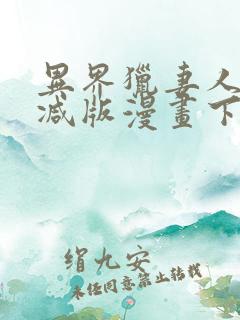 異界獵妻人
減版漫畫下
绢九安
未经同意禁止转载